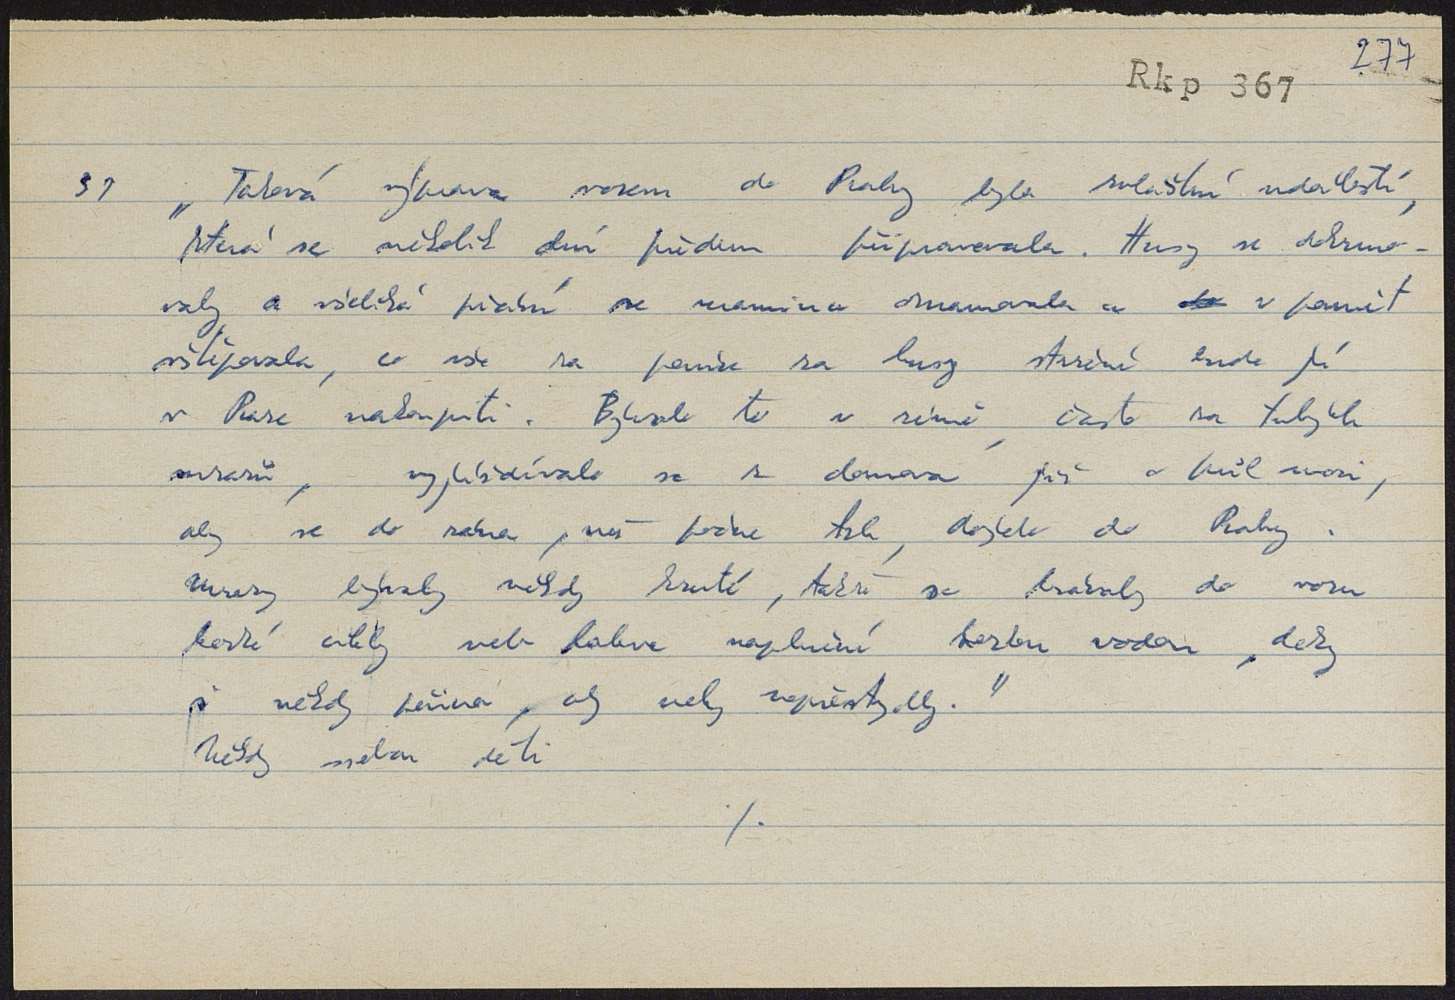 277
Rkp 367
37 „Taková výprava vozem do Prahy byla zvláštní událostí,
která se několik dní předem připravovala. Husy se dokrmo-
valy a všeliká přání se mamince oznamovala a v paměť
vštěpovala, co vše za peníze za husy stržené bude jí
v Praze nakoupiti. Bývalo to v zimě, často za tuhých
mrazů, vyjíždívalo se z domova již o půl noci,
aby se do rána, než počne trh, dojelo do Prahy.
Mrazy bývaly někdy kruté, takže se brávaly do vozu
horké cihly neb lahve naplněné horkou vodou, deky
i někdy peřina, aby nohy neprostydly."
Někdy sebou děti
/.